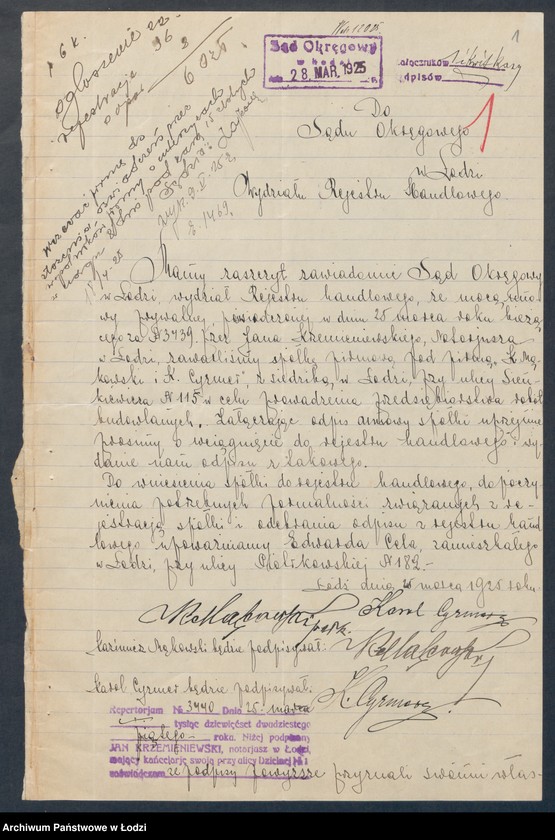 1
Sąd Okręgowy
w Łodzi
28. MAR. 1925
ałączników 1 i kwit kasy
dpisów
Ogłoszenie za
rejestrację
96 3
6 ozł
18/4 25
Do
Sądu Okręgowego
w Łodzi
Wydziału Rejestru Handlowego.
Mamy zaszczyt zawiadomić Sąd Okręgowy
w Łodzi, wydział Rejestru handlowego, że mocą umo-
wy prywatnej, poświadczonej w dniu 25 marca roku bieżą-
cego za N 3439 przez Jana Krzemieniewskiego, Notarjusza
w Łodzi, zawarliśmy spółkę firmową pod firmą "K. Mą-
kowski i K. Cyrmer", z siedzibą w Łodzi, przy ulicy Sien-
kiewicza N 115 w celu prowadzenia przedsiębiorstwa robót
budowlanych. Załączając odpis umowy spółki uprzejmie
prosimy o wciągnięcie do rejestru handlowego i wy-
danie nam odpisu z takowego.
Do wniesienia spółki do rejestru handlowego, do poczy-
nienia potrzebnych formalności związanych z re-
jestracją spółki i odebrania odpisu z rejestru hand
lowego upoważniamy Edwarda Cela, zamieszkałego
w Łodzi, przy ulicy Piotrkowskiej N 182.-
Łódź dnia 25 marca 1925 roku.
K. Mąkowski Karol Cyrmer
Kazimierz Mąkowski będzie podpisywał: K. Mąkowski
Karol Cyrmer będzie podpisywał: K. Cyrmer
Repertorjum № 3440 Dnia 25 marca
tysiąc dziewięćset dwudziestego
piątego roku. Niżej podpisany
JAN KRZEMIENIEWSKI, notarjusz w Łodzi,
mający kancelarję swoją przy ulicy Dzielnej № 1
zaświadczam że podpisy powyższe przyznali swoimi włas-
Archiwum Państwowe w Łodzi